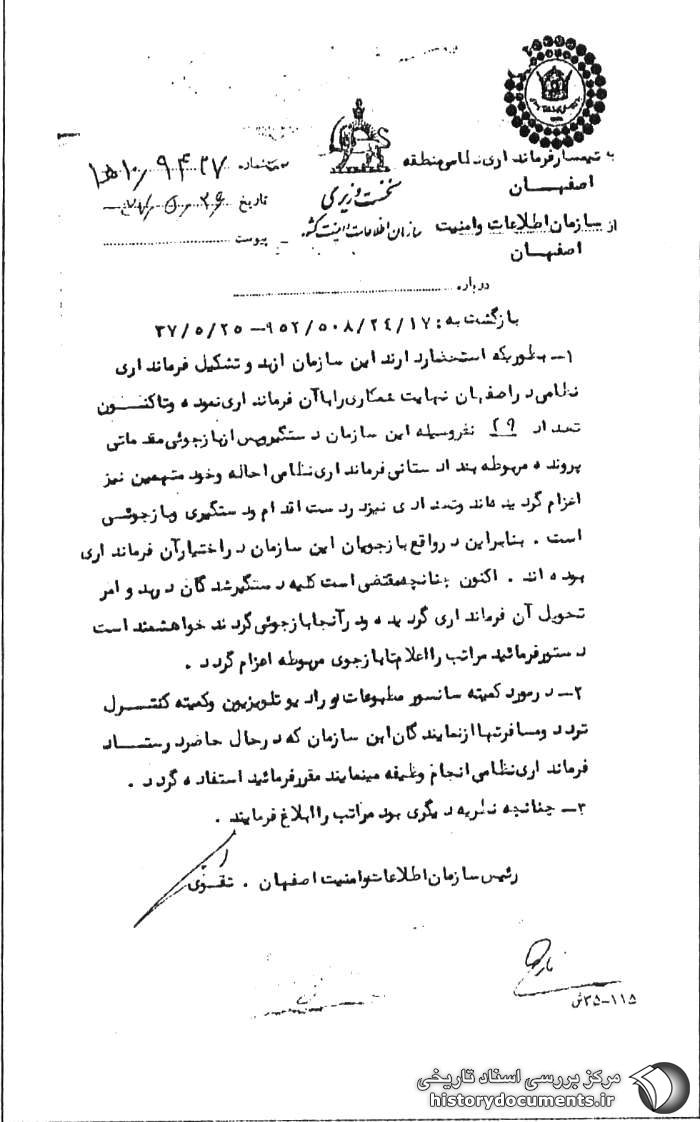 به تیمسار فرمانداری نظامی منطقه
اصفهان
از سازمان اطلاعات و امنیت
اصفهان
نخست وزیری
سازمان اطلاعات و امنیت کشور
شماره ۹۴۲۷
تاریخ
پیوست
درباره
بازگشت به : ۹۵۲/۵۰۸/۲۴/۱۷–۳۷/۵/۲۵
۱– بطوریکه استحضار دارند این سازمان از بدو تشکیل فرمانداری
نظامی در اصفهان نهایت همکاری را با آن فرمانداری نموده و تاکنون
تعداد ۲۹ نفر وسیله این سازمان دستگیر و پس از بازجوئی مقدماتی
پرونده مربوطه به دادستانی فرمانداری نظامی احاله و خود متهمین نیز
اعزام گردیده اند و تعدادی نیز در دست اقدام و دستگیری و بازجوئی
است . بنابراین در واقع بازجویان این سازمان در اختیار آن فرمانداری
بوده اند . اکنون چنانچه مقتضی است کلیه دستگیرشدگان در بدو امر
تحویل آن فرمانداری گردیده و در آنجا بازجوئی گردند خواهشمند است
دستور فرمائید مراتب را اعلام تا بازجوی مربوطه اعزام گردد .
۲– در مورد کمیته سانسور مطبوعات و رادیو تلویزیون و کمیته کنترل
تردد و مسافرتها از نمایندگان این سازمان که در حال حاضر در ستاد
فرمانداری نظامی انجام وظیفه مینمایند مقرر فرمائید استفاده گردد .
۳– چنانچه نظریه دیگری بود مراتب را ابلاغ فرمایند .
رئیس سازمان اطلاعات و امنیت اصفهان . تقوی
۱۱۵–۳۵ش
مرکز بررسی اسناد تاریخی
historydocuments.ir